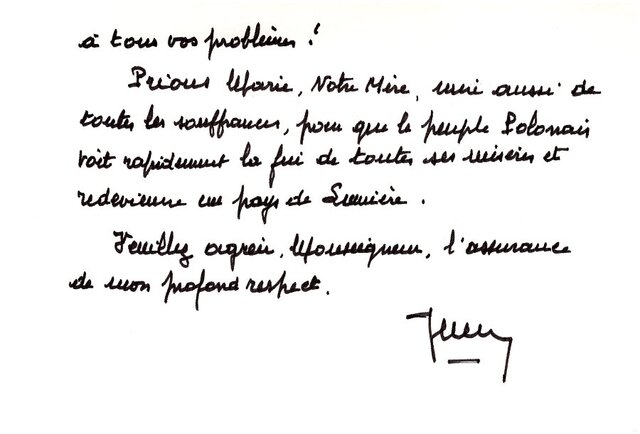 à tous vos problèmes !
Prions Marie, Notre Mère, mère aussi de
toutes les souffrances, pour que le peuple Polonais
voit rapidement la fin de toutes ses misères et
redevienne un pays de Lumière.
Veuillez agréer, Monseigneur, l'assurance
de mon profond respect.